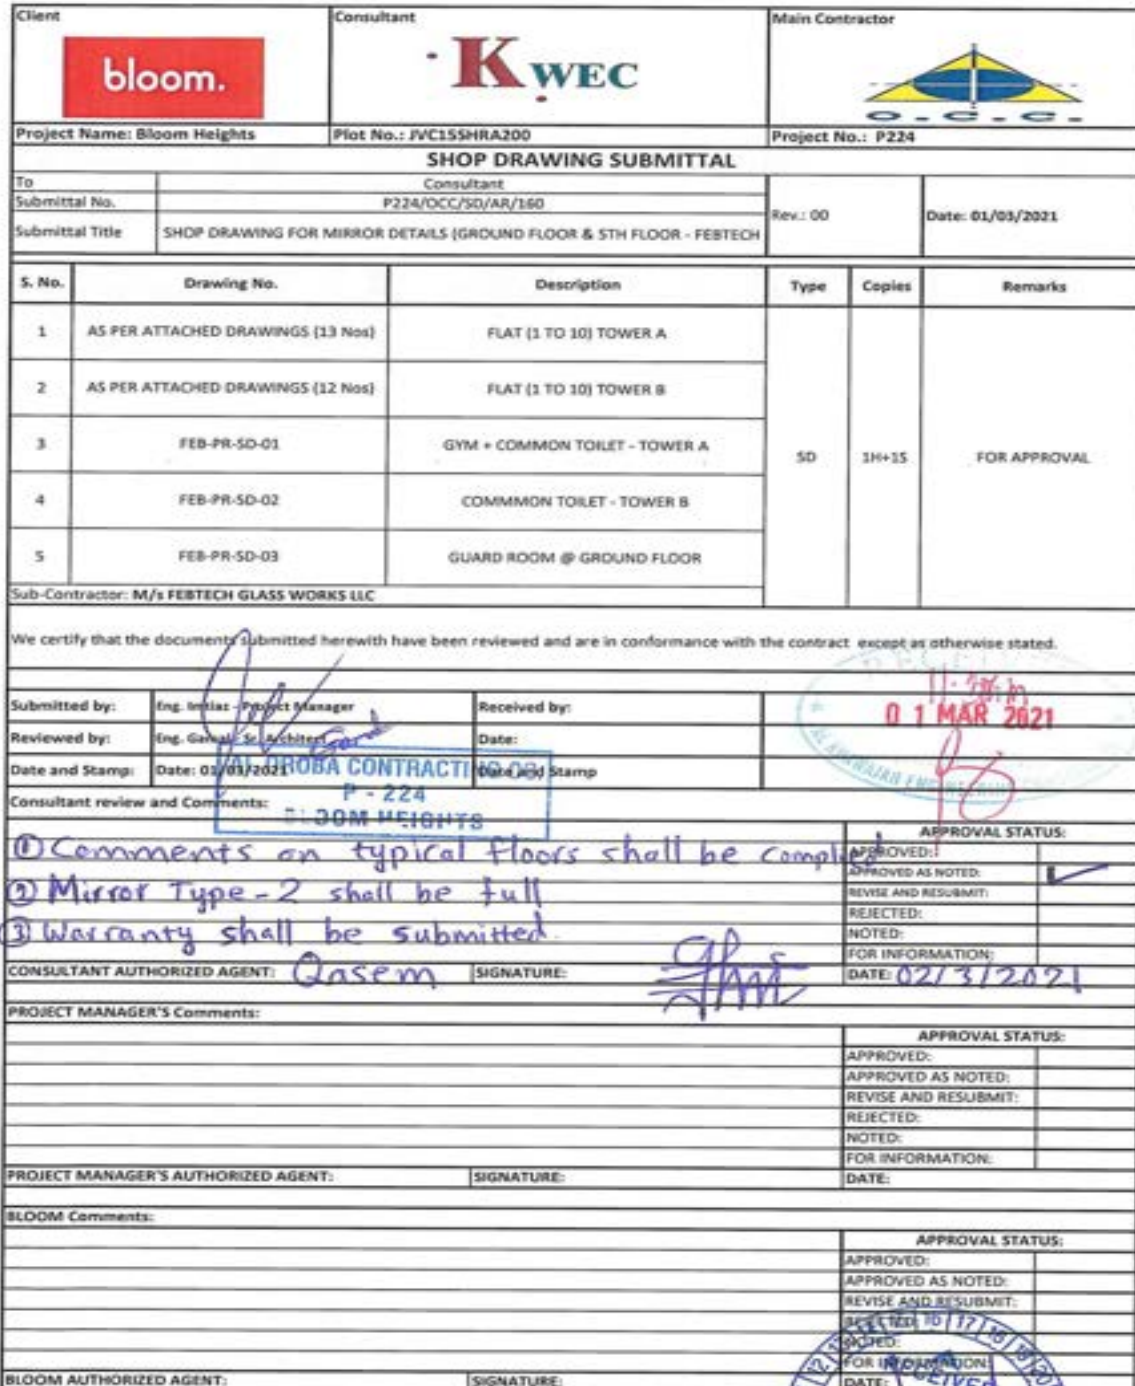 Client
Consultant
Main Contractor
bloom.
KWEC
O.C.C.
Project Name: Bloom Heights
Plot No.: JVC15SHRA200
Project No.: P224
SHOP DRAWING SUBMITTAL
To
Consultant
Submittal No.
P224/OCC/SD/AR/160
Rev.: 00
Date: 01/03/2021
Submittal Title
SHOP DRAWING FOR MIRROR DETAILS (GROUND FLOOR & 5TH FLOOR - FEBTECH
S. No. Drawing No. Description Type Copies Remarks
1 AS PER ATTACHED DRAWINGS (13 Nos) FLAT (1 TO 10) TOWER A
2 AS PER ATTACHED DRAWINGS (12 Nos) FLAT (1 TO 10) TOWER B
3 FEB-PR-SD-01 GYM + COMMON TOILET - TOWER A
SD 1H+1S FOR APPROVAL
4 FEB-PR-SD-02 COMMMON TOILET - TOWER B
5 FEB-PR-SD-03 GUARD ROOM @ GROUND FLOOR
Sub-Contractor: M/s FEBTECH GLASS WORKS LLC
We certify that the documents submitted herewith have been reviewed and are in conformance with the contract except as otherwise stated.
Submitted by: Eng. Imtiaz - Project Manager Received by:
01 MAR 2021
Reviewed by: Eng. Sr. Architect Date:
Date and Stamp: Date: 01/03/2021 Date and Stamp
AL OROBA CONTRACTING CO
P - 224
BLOOM HEIGHTS
Consultant review and Comments:
APPROVAL STATUS:
① Comments on typical floors shall be complied
APPROVED:
APPROVED AS NOTED: ✓
② Mirror Type-2 shall be full
REVISE AND RESUBMIT:
REJECTED:
③ Warranty shall be submitted.
NOTED:
FOR INFORMATION:
CONSULTANT AUTHORIZED AGENT: Qasem SIGNATURE:
DATE: 02/3/2021
PROJECT MANAGER'S Comments:
APPROVAL STATUS:
APPROVED:
APPROVED AS NOTED:
REVISE AND RESUBMIT:
REJECTED:
NOTED:
FOR INFORMATION:
PROJECT MANAGER'S AUTHORIZED AGENT: SIGNATURE: DATE:
BLOOM Comments:
APPROVAL STATUS:
APPROVED:
APPROVED AS NOTED:
REVISE AND RESUBMIT:
REJECTED:
NOTED:
FOR INFORMATION:
RECEIVED
BLOOM AUTHORIZED AGENT: SIGNATURE: DATE: